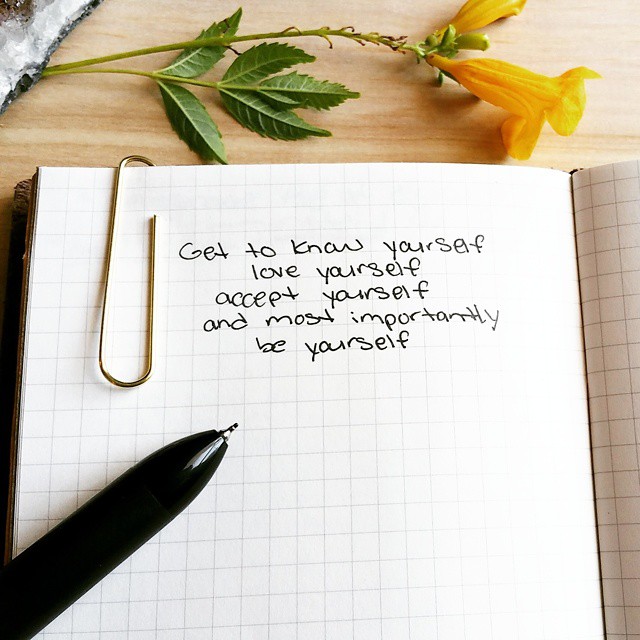 Get to know yourself
love yourself
accept yourself
and most importantly
be yourself